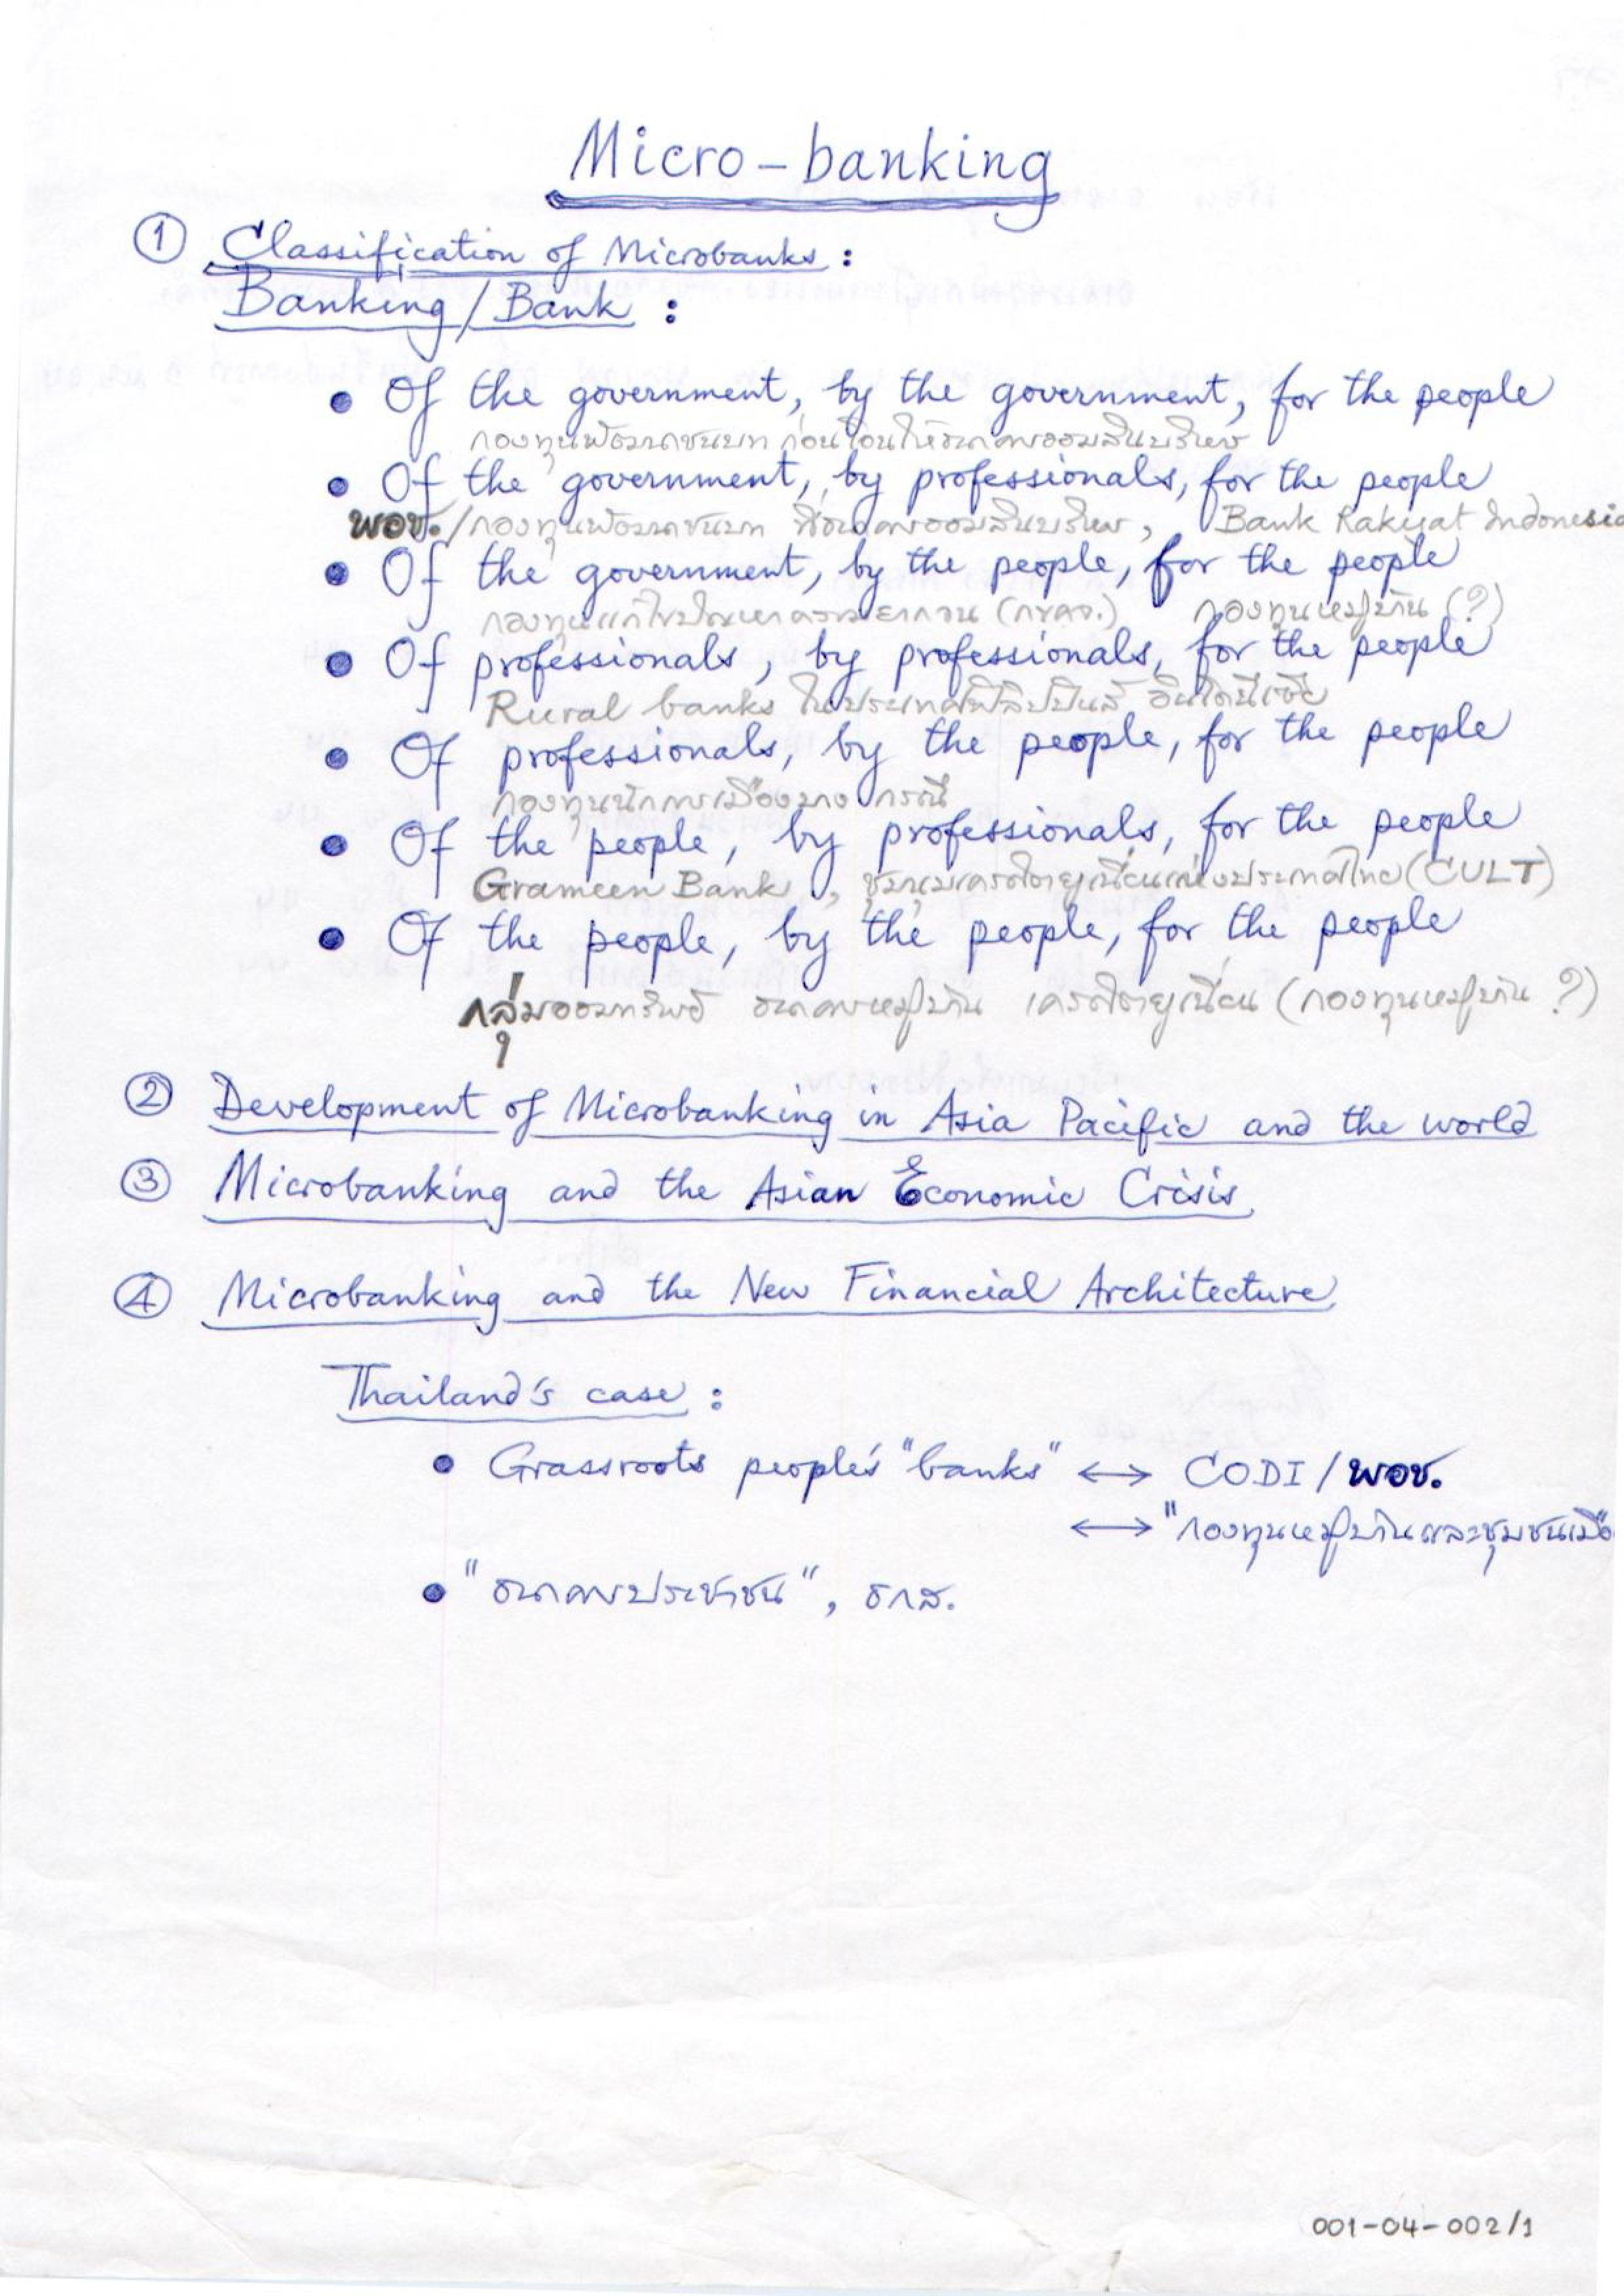 Micro-banking
① Classification of Microbanks :
Banking/Bank :
• Of the government, by the government, for the people
กองทุนพัฒนาชนบท ก่อนโอนให้ธนาคารออมสินบริหาร
• Of the government, by professionals, for the people
พอช./กองทุนพัฒนาชนบท ที่ธนาคารออมสินบริหาร, Bank Rakyat Indonesia
• Of the government, by the people, for the people
กองทุนแก้ไขปัญหาความยากจน (กขคจ.) กองทุนหมู่บ้าน (?)
• Of professionals, by professionals, for the people
Rural banks ในประเทศฟิลิปปินส์ อินโดนีเซีย
• Of professionals, by the people, for the people
กองทุนนักการเมืองบางกรณี
• Of the people, by professionals, for the people
Grameen Bank, ชุมนุมเครดิตยูเนี่ยนแห่งประเทศไทย (CULT)
• Of the people, by the people, for the people
กลุ่มออมทรัพย์ ธนาคารหมู่บ้าน เครดิตยูเนี่ยน (กองทุนหมู่บ้าน ?)
② Development of Microbanking in Asia Pacific and the world
③ Microbanking and the Asian Economic Crisis
④ Microbanking and the New Financial Architecture
Thailand's case :
• Grassroots people's "banks" ↔ CODI / พอช.
↔ "กองทุนหมู่บ้านและชุมชนเมือ
• "ธนาคารประชาชน", ธกส.
001-04-002/1